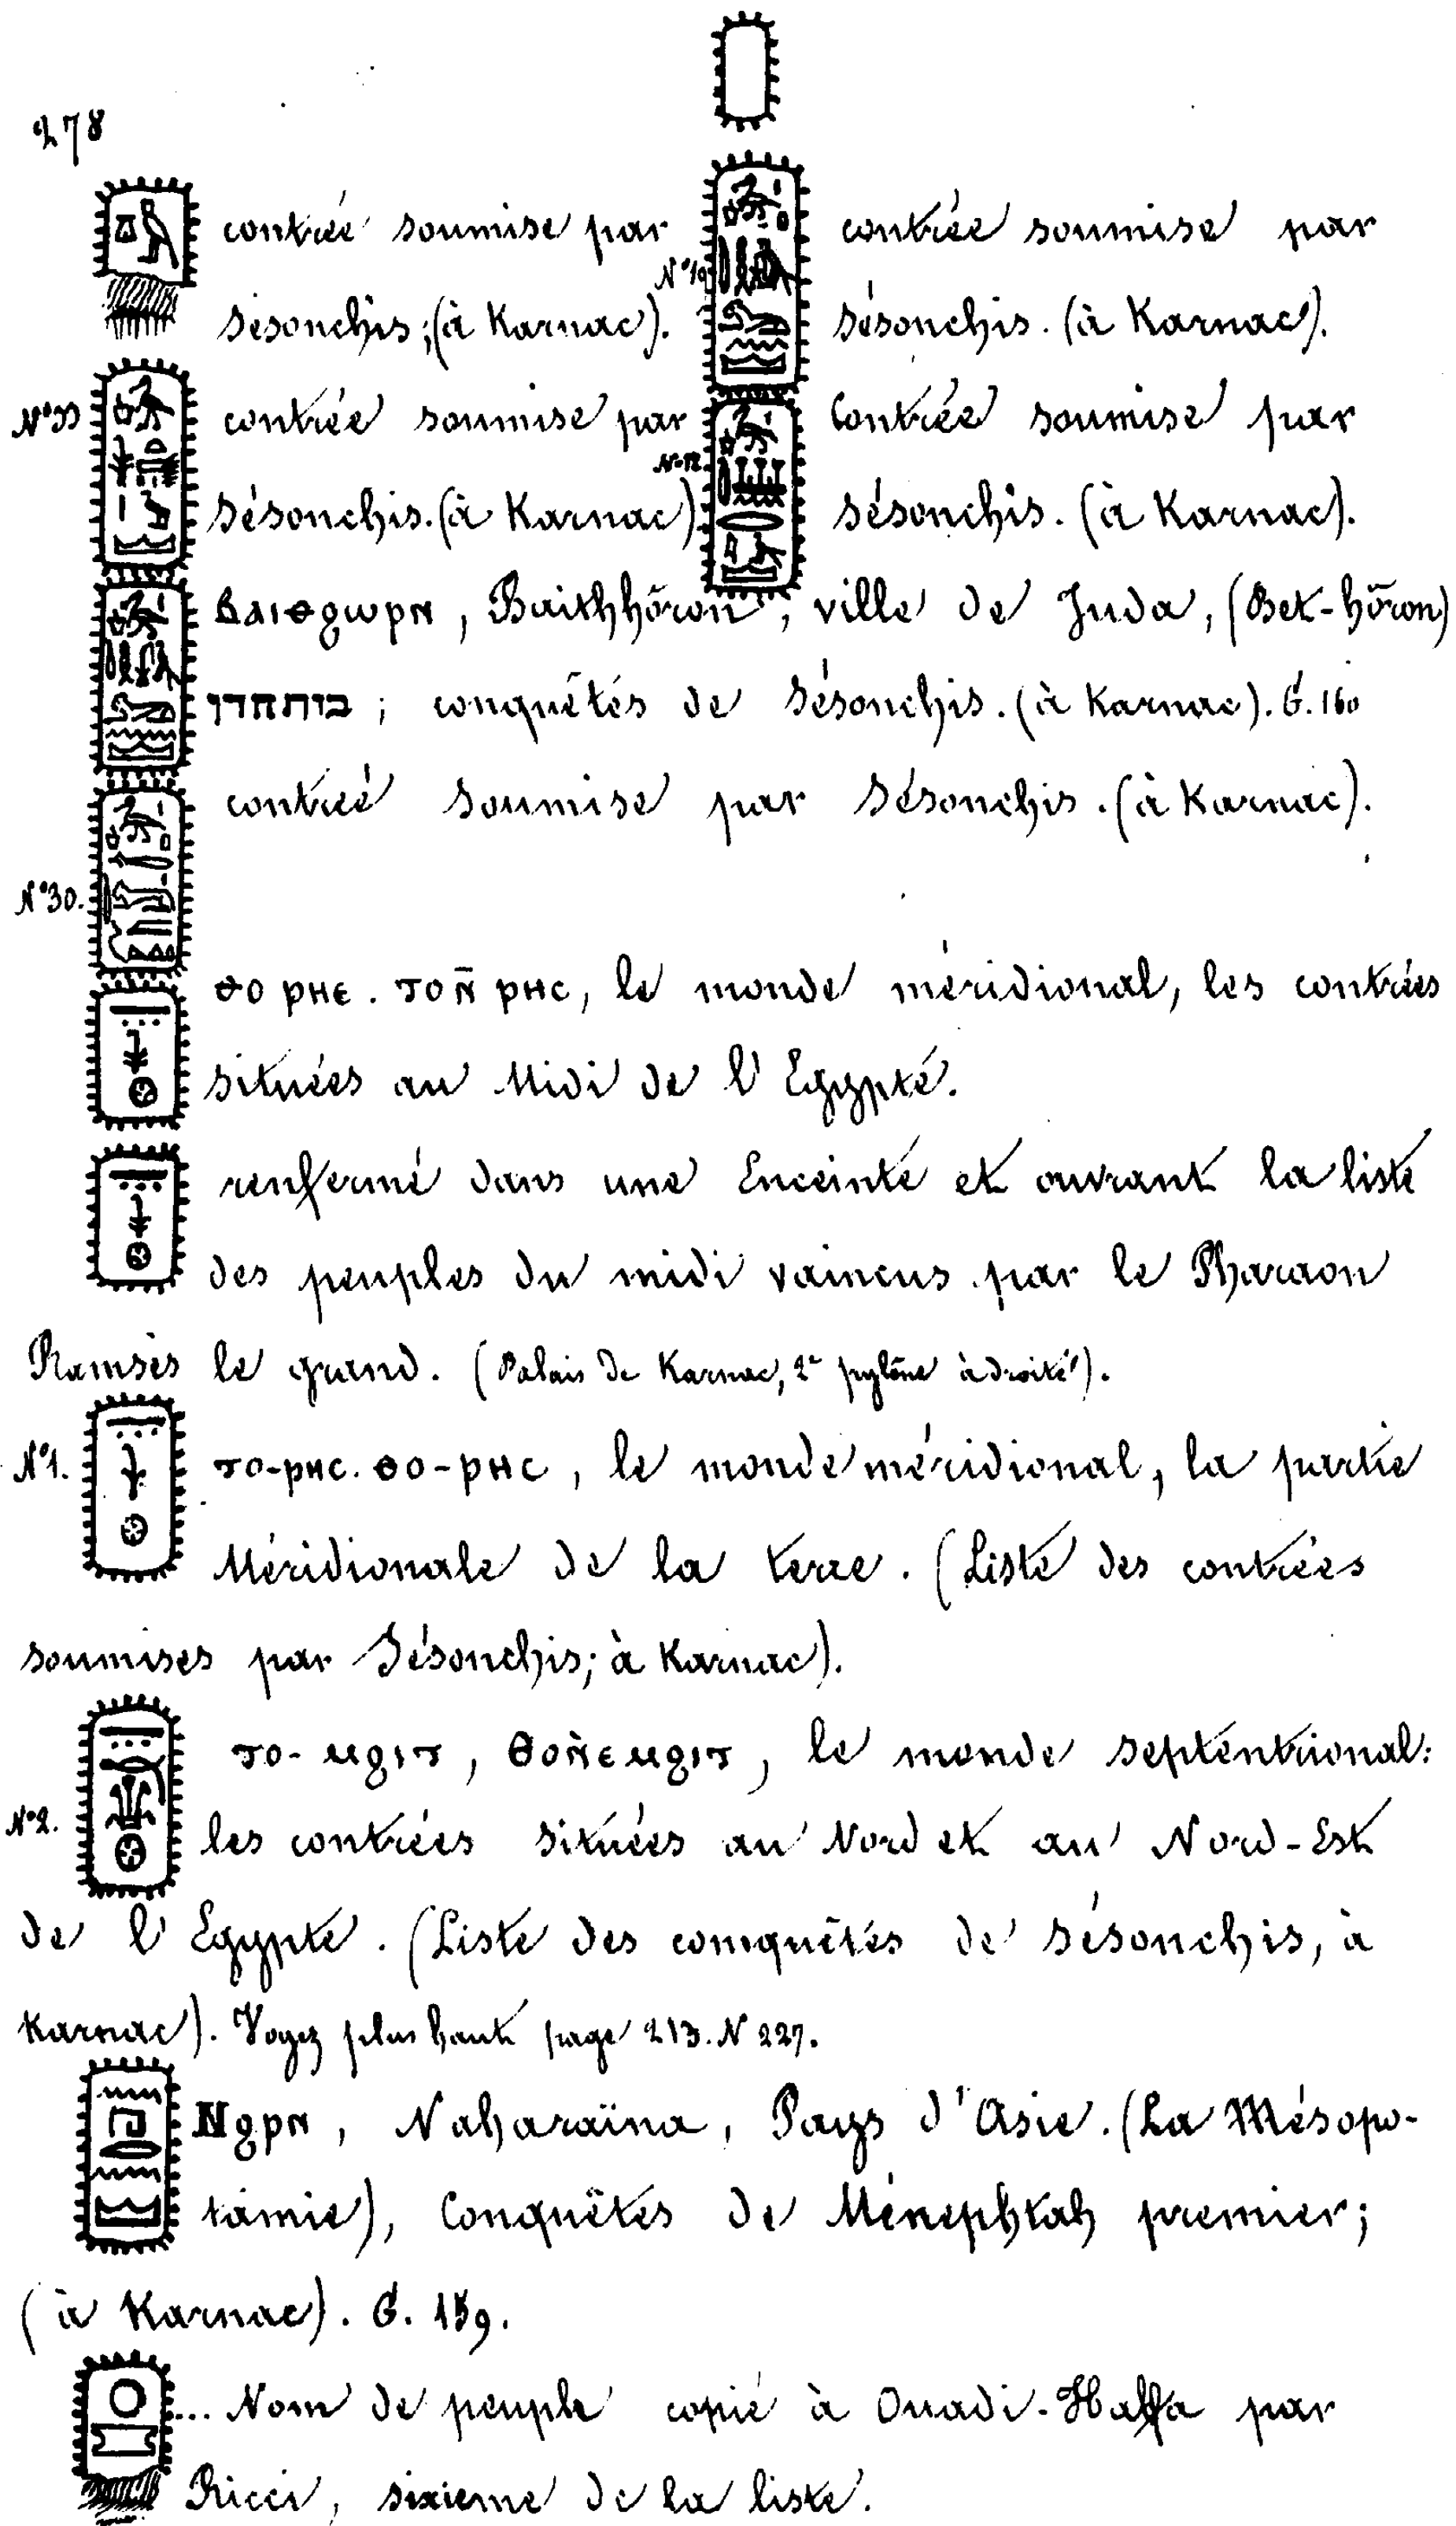 278
contrée soumise par
Sésonchis; (à Karnac).
N° 19
contrée soumise par
Sésonchis. (à Karnac).
contrée soumise par
Sésonchis. (à Karnac)
Contrée soumise par
Sésonchis. (à Karnac).
ⲃⲁⲓⲑϩⲱⲣⲛ, Baithhōron, ville de Juda, (Bet-hōron)
; conquêtés de Sésonchis. (à Karnac). G. 160
contreé soumise par Sésonchis. (à Karnac).
N° 30.
ⲑⲟ ⲣⲏⲥ. ⲧⲟⲛ̄ ⲣⲏⲥ, le monde méridional, les contrées
situées au Midi de l'Egypte.
renfermé dans une Enceinte et ouvrant la liste
des peuples du midi vaincus par le Pharaon
Ramsès le grand. (Palais de Karnac, 2e pylône à droite).
N° 1.
ⲧⲟ-ⲣⲏⲥ. ⲑⲟ-ⲣⲏⲥ, le monde méridional, la partie
Méridionale de la terre. (Liste des contrées
soumises par Sésonchis; à Karnac).
N° 2.
ⲧⲟ-ⲙϩⲓⲧ, ⲑⲟⲛ̀ⲉⲙϩⲓⲧ, le monde septentrional:
les contrées situées au Nord et au Nord-Est
de l'Egypte. (Liste des comquêtes de Sésonchis, à
Karnac). Voyez plus haut page 213. N 227.
Ⲛϩⲣⲛ, Naharaïna, Pays d'Asie. (La Mésopo-
tamie), Conquêtes de Ménephtah premier;
(à Karnac). G. 159.
... Nom de peuple copié à Ouadi-Halfa par
Ricci, sixieme de la liste.